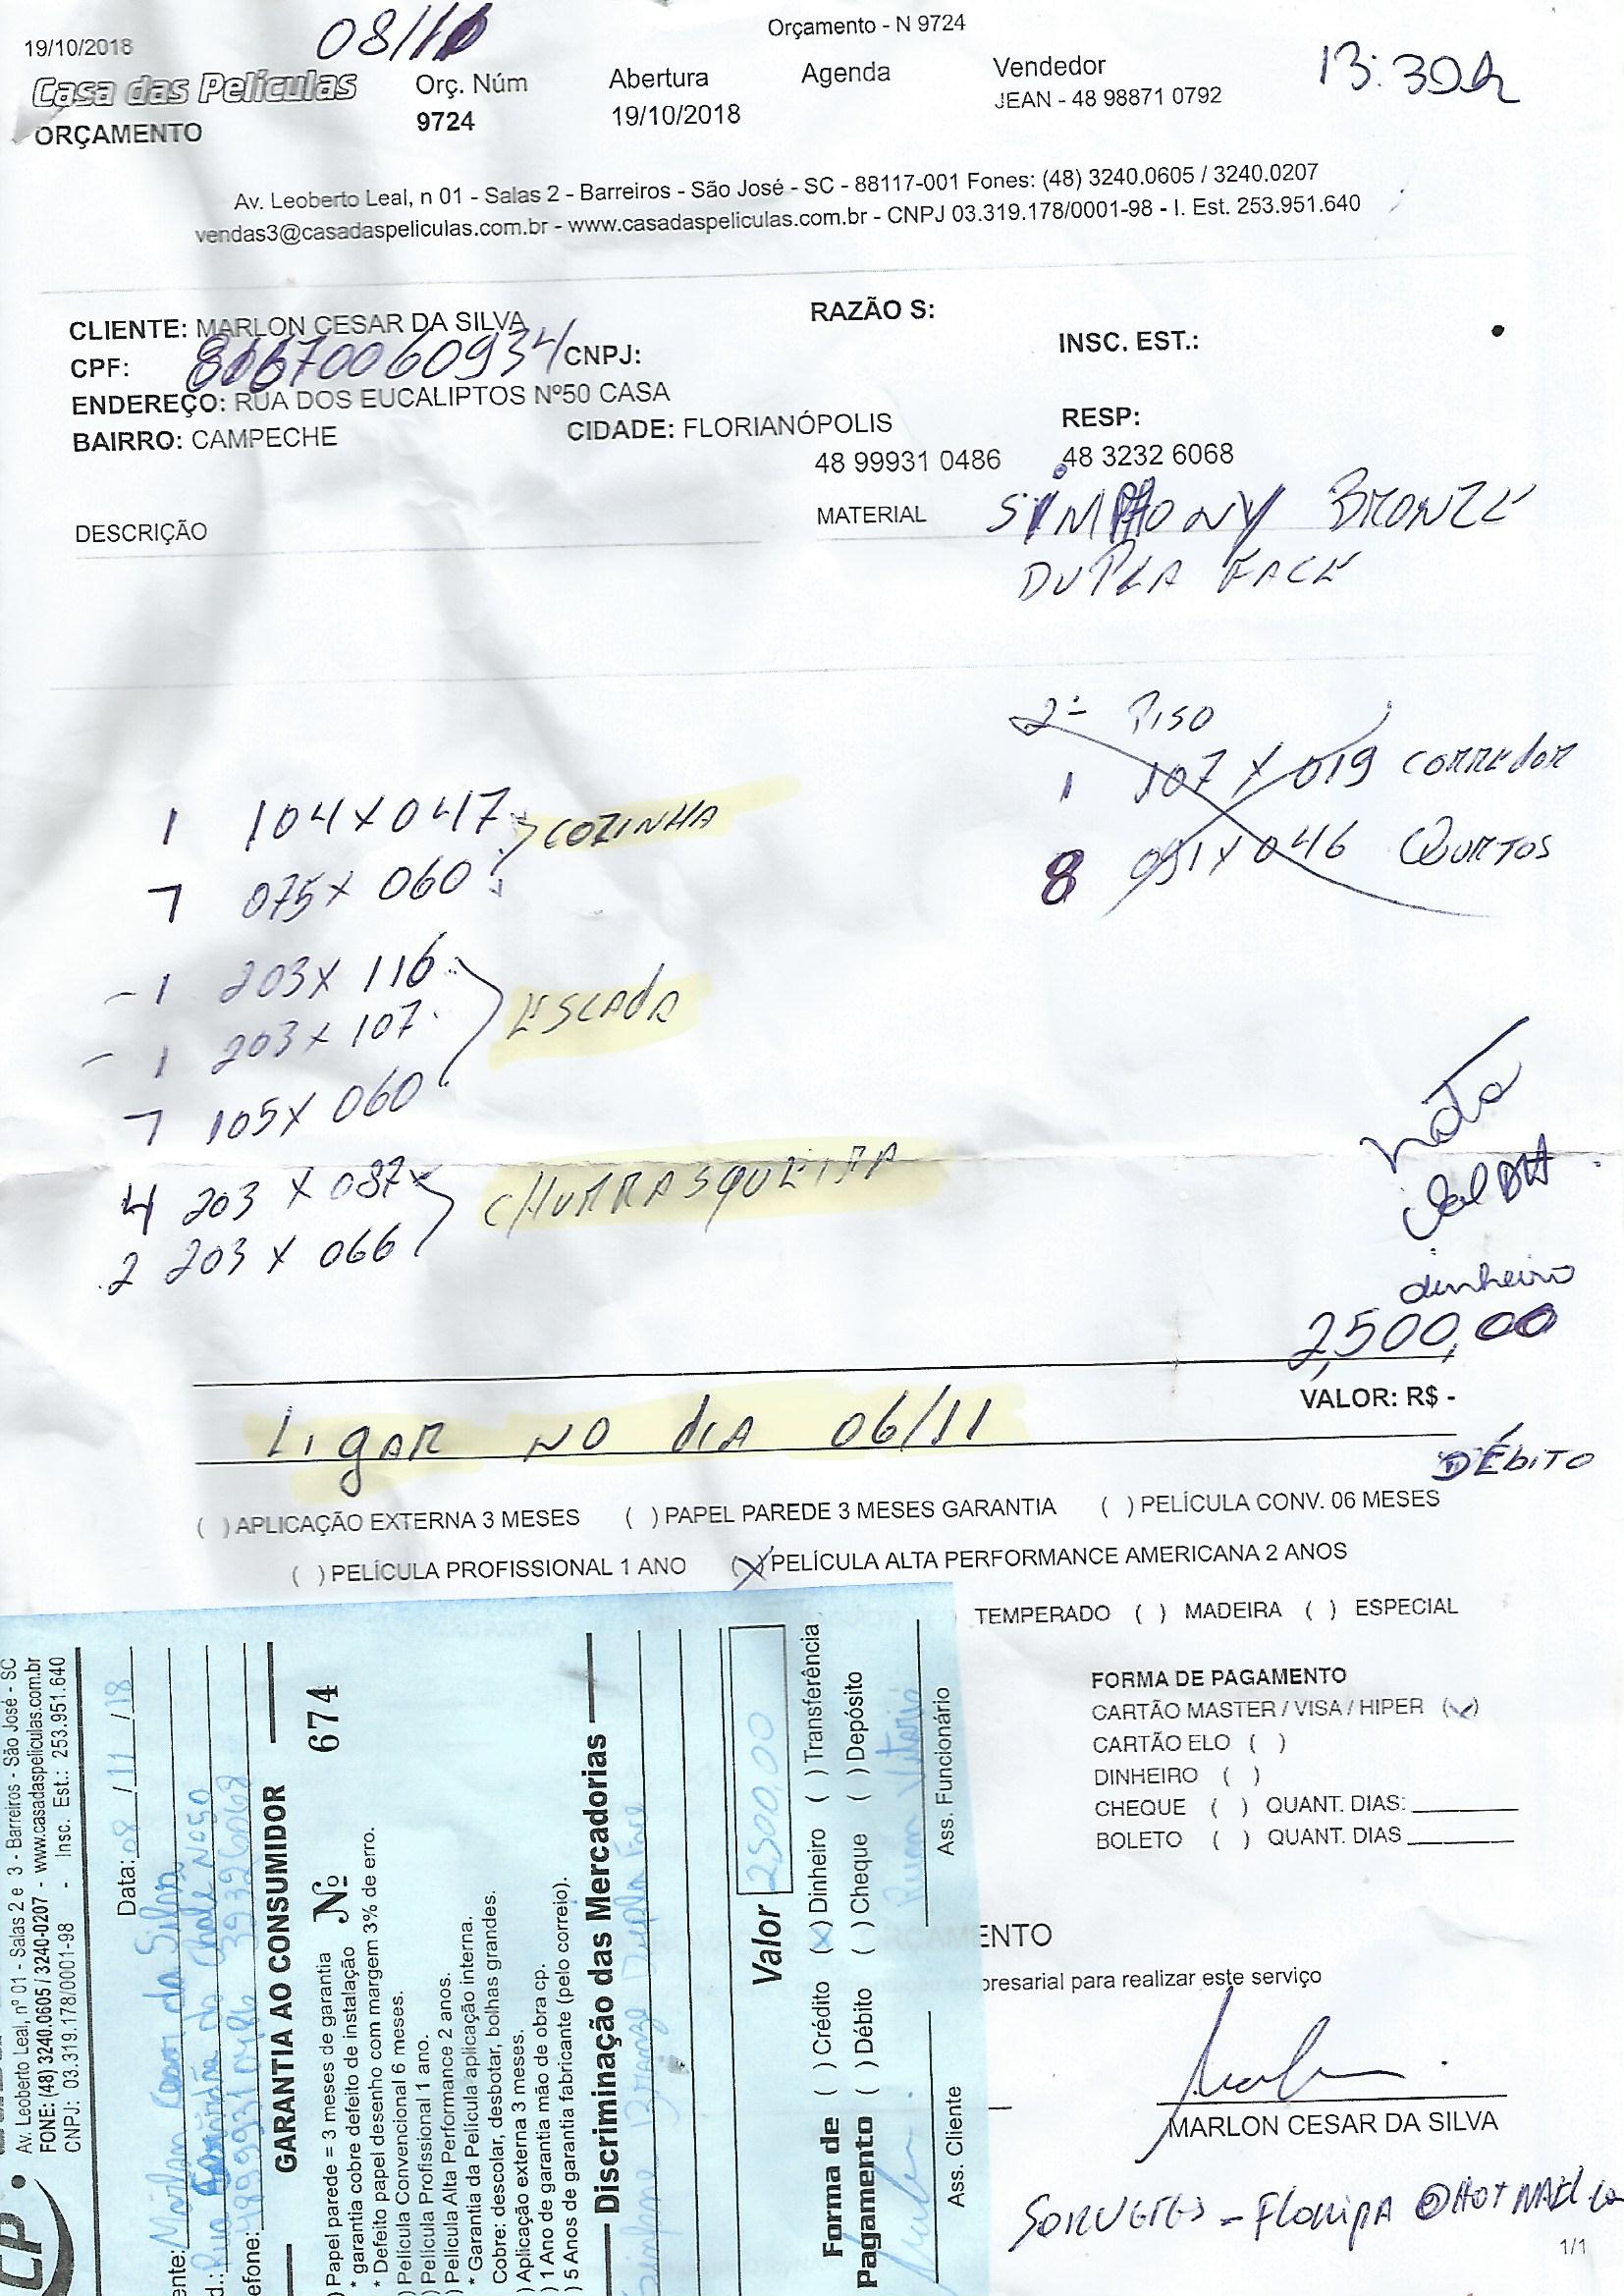 Orçamento - N 9724
19/10/2018
08/11
13:30h
Casa das Películas
ORÇAMENTO
Orç. Núm
9724
Abertura
19/10/2018
Agenda
Vendedor
JEAN - 48 98871 0792
Av. Leoberto Leal, n 01 - Salas 2 - Barreiros - São José - SC - 88117-001 Fones: (48) 3240.0605 / 3240.0207
vendas3@casadaspeliculas.com.br - www.casadaspeliculas.com.br - CNPJ 03.319.178/0001-98 - I. Est. 253.951.640
CLIENTE: MARLON CESAR DA SILVA
RAZÃO S:
CPF: CNPJ:
INSC. EST.:
ENDEREÇO: RUA DOS EUCALIPTOS Nº50 CASA
BAIRRO: CAMPECHE
CIDADE: FLORIANÓPOLIS
RESP:
48 99931 0486
48 3232 6068
DESCRIÇÃO
MATERIAL
SIMPHONY BRONZE
DUPLA FACE
2º PISO
1 107 X 019 CORREDOR
8 091 X 046 QUARTOS
1 104 X 047
COZINHA
7 075 X 060
- 1 203 X 116
- 1 203 X 107
ESCADA
7 105 X 060
4 203 X 087
CHURRASQUEIRA
2 203 X 066
nota
dinheiro
2,500,00
VALOR: R$ -
LIGAR NO DIA 06/11
DÉBITO
( ) APLICAÇÃO EXTERNA 3 MESES ( ) PAPEL PAREDE 3 MESES GARANTIA ( ) PELÍCULA CONV. 06 MESES
( ) PELÍCULA PROFISSIONAL 1 ANO (X) PELÍCULA ALTA PERFORMANCE AMERICANA 2 ANOS
TEMPERADO ( ) MADEIRA ( ) ESPECIAL
FORMA DE PAGAMENTO
CARTÃO MASTER / VISA / HIPER (✓)
CARTÃO ELO ( )
DINHEIRO ( )
CHEQUE ( ) QUANT. DIAS:
BOLETO ( ) QUANT. DIAS
ENTO
presarial para realizar este serviço
MARLON CESAR DA SILVA
1/1
CP
Av. Leoberto Leal, nº 01 - Salas 2 e 3 - Barreiros - São José - SC
FONE: (48) 3240.0605 / 3240-0207 - www.casadaspeliculas.com.br
CNPJ: 03.319.178/0001-98 - Insc. Est.: 253.951.640
Data: 08/11/18
ente: Marlon Cesar da Silva
d.: Rua
efone: 48999310486
GARANTIA AO CONSUMIDOR
Nº 674
) Papel parede = 3 meses de garantia
* garantia cobre defeito de instalação
* Defeito papel desenho com margem 3% de erro.
) Película Convencional 6 meses.
) Película Profissional 1 ano.
) Película Alta Performance 2 anos.
* Garantia da Película aplicação interna.
Cobre: descolar, desbotar, bolhas grandes.
) Aplicação externa 3 meses.
) 1 Ano de garantia não mão de obra cp.
) 5 Anos de garantia fabricante (pelo correio).
Discriminação das Mercadorias
Bronze Dupla Face
Valor 2500,00
Forma de Pagamento
( ) Crédito (x) Dinheiro ( ) Transferência
( ) Débito ( ) Cheque ( ) Depósito
Ass. Cliente
Ass. Funcionário